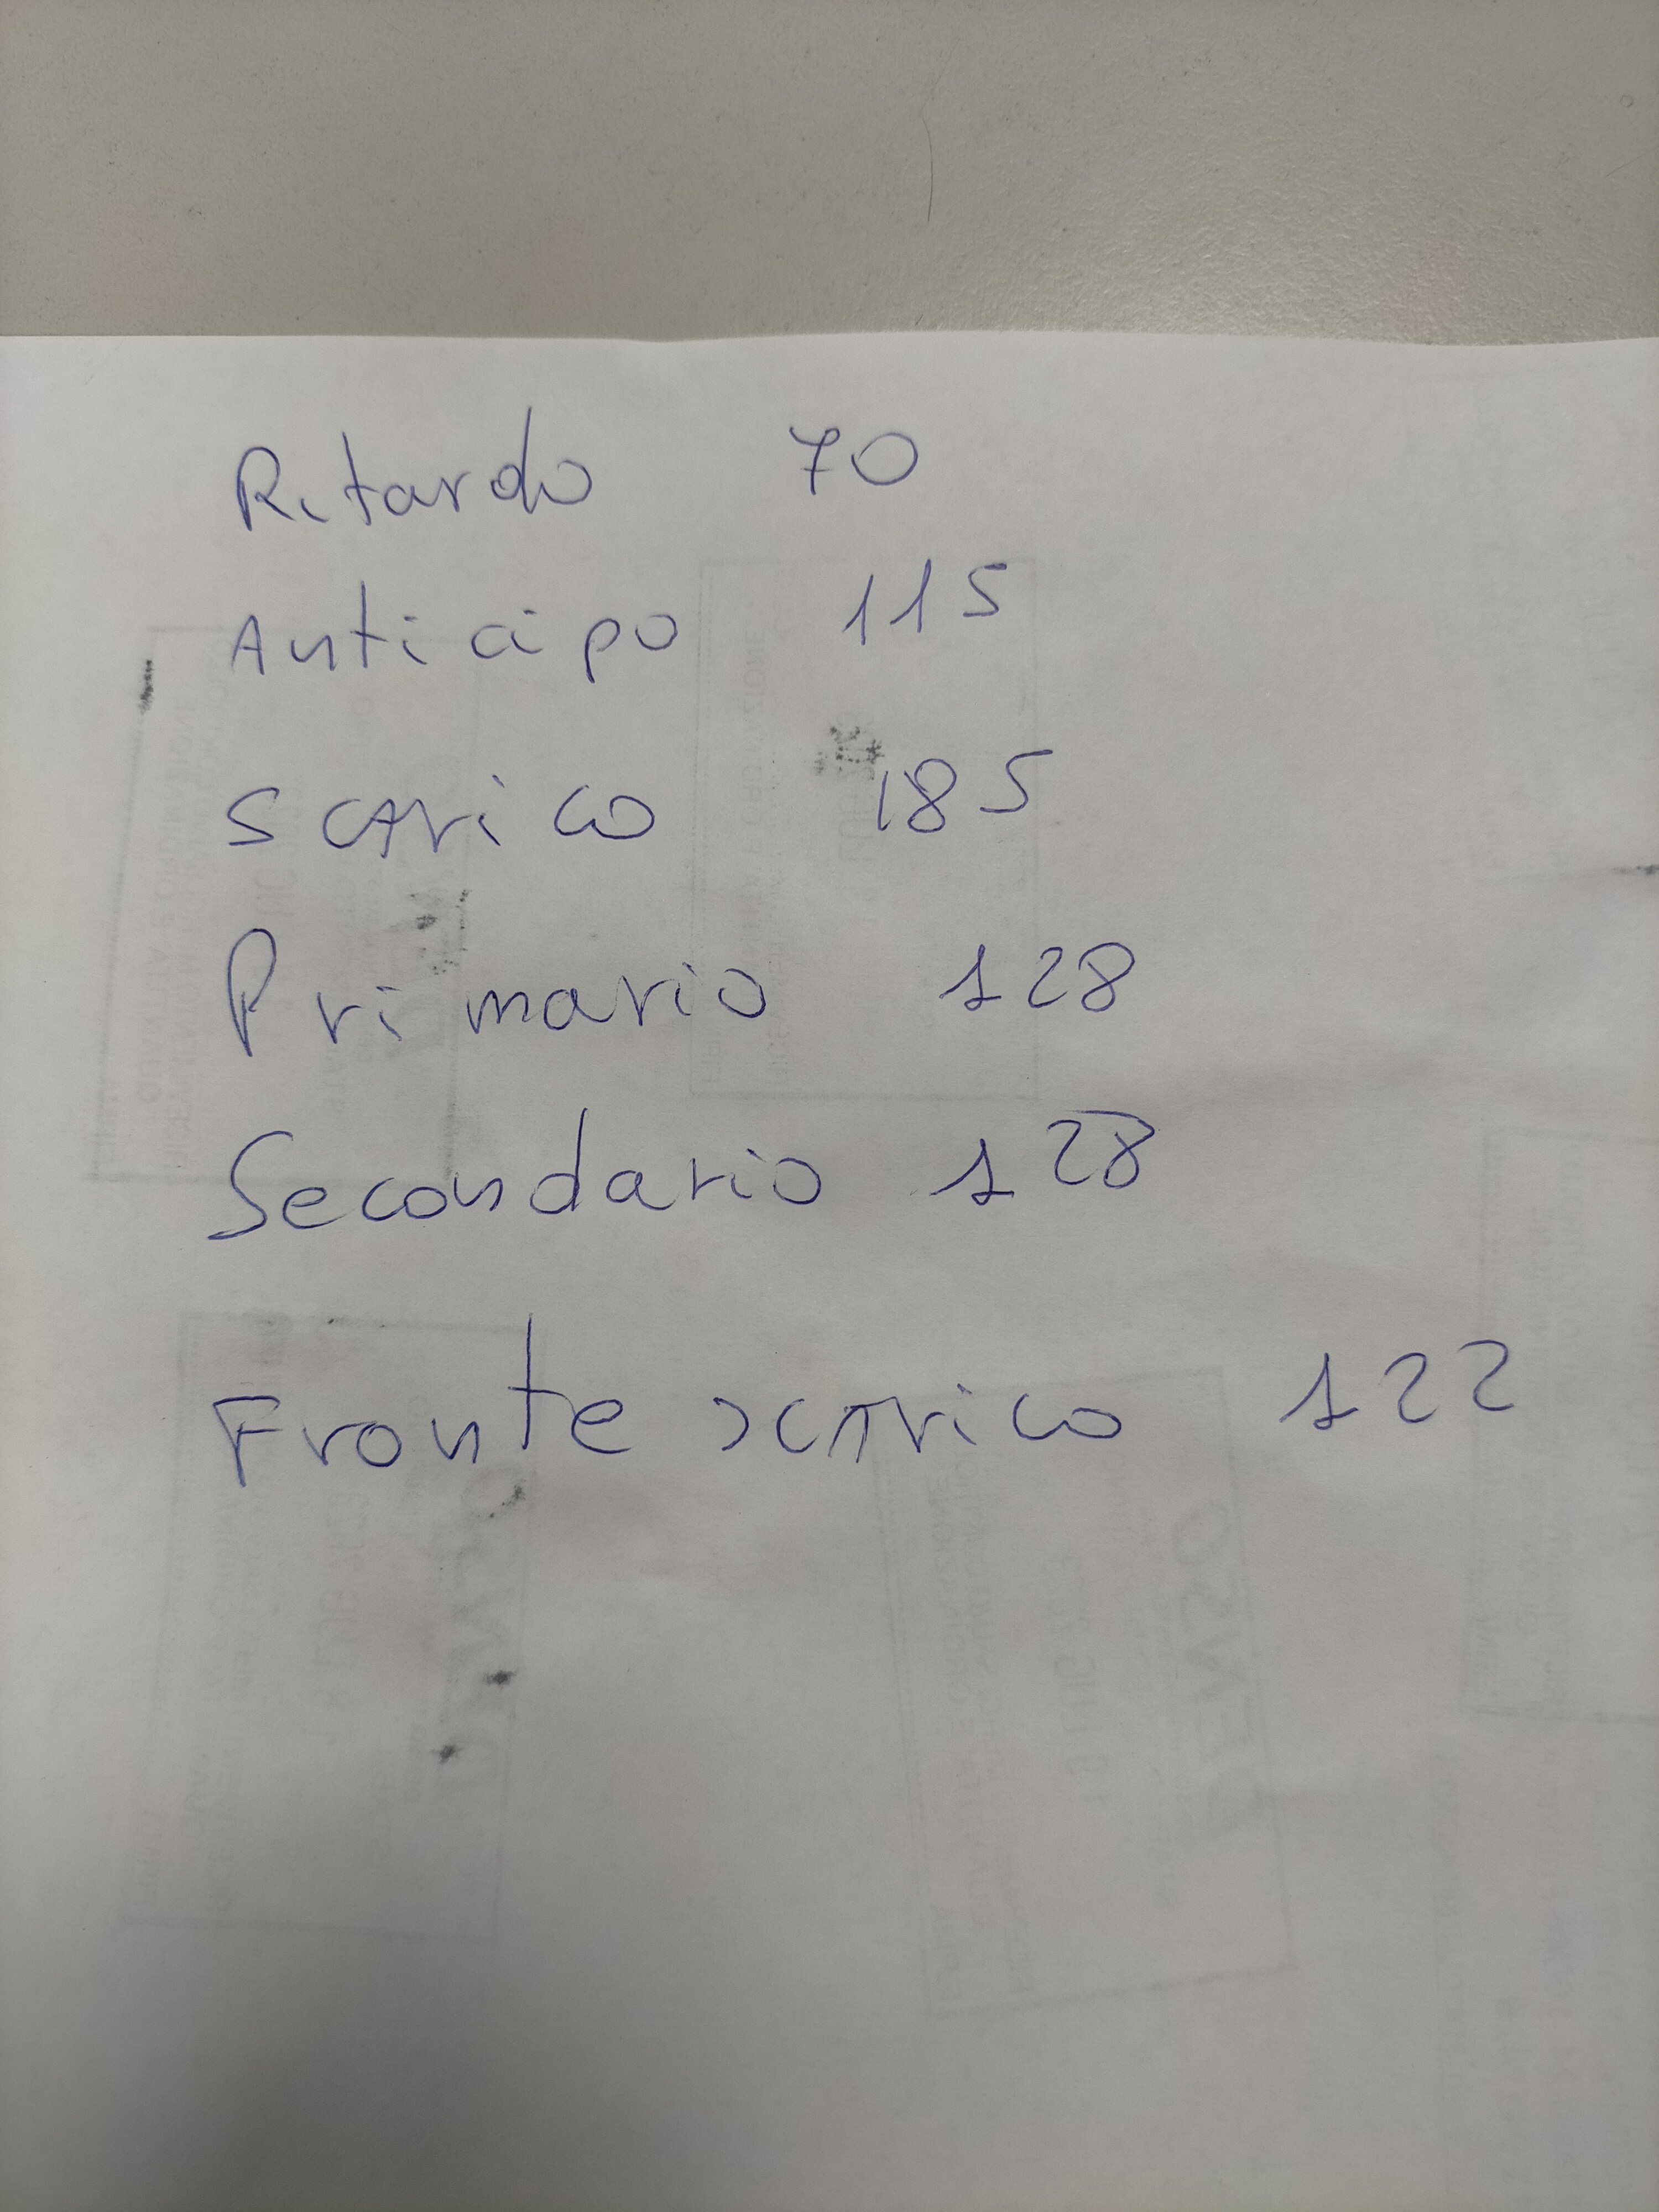 Ritardo 70
Anticipo 115
Scarico 185
Primario 128
Secondario 128
Fronte scarico 122